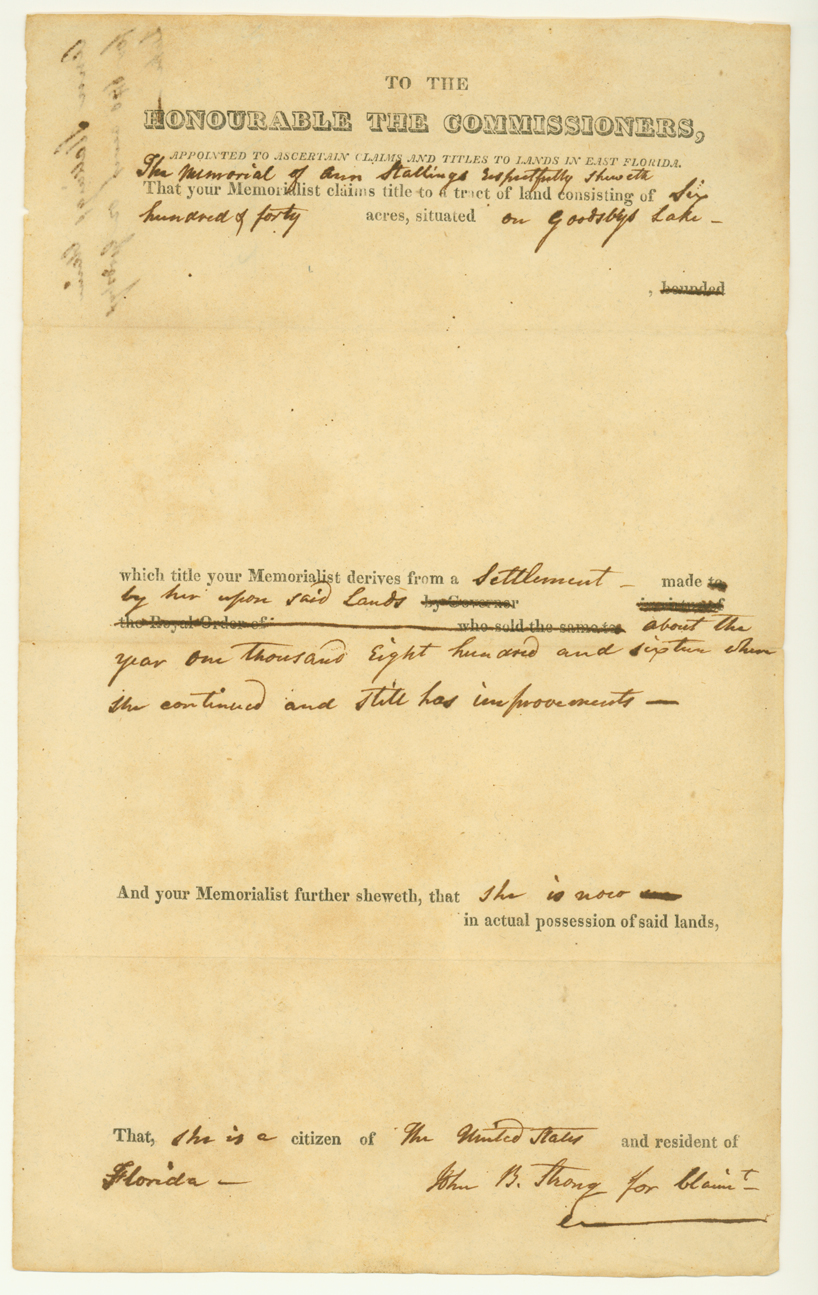 TO THE
HONOURABLE THE COMMISSIONERS,
APPOINTED TO ASCERTAIN CLAIMS AND TITLES TO LANDS IN EAST FLORIDA.
The Memorial of Ann Stallings Respectfully Sheweth
That your Memorialist claims title to a tract of land consisting of Six
hundred & forty acres, situated on Goodsbys Lake –
, bounded
which title your Memorialist derives from a Settlement – made to
by her upon said Lands by Governor in virtue of
the Royal Order of who sold the same to about the
year one thousand Eight hundred and sixteen where
she continued and still has improvements —
And your Memorialist further sheweth, that she is now
in actual possession of said lands,
That, she is a citizen of The United States and resident of
Florida – John B. Strong for Claimt –